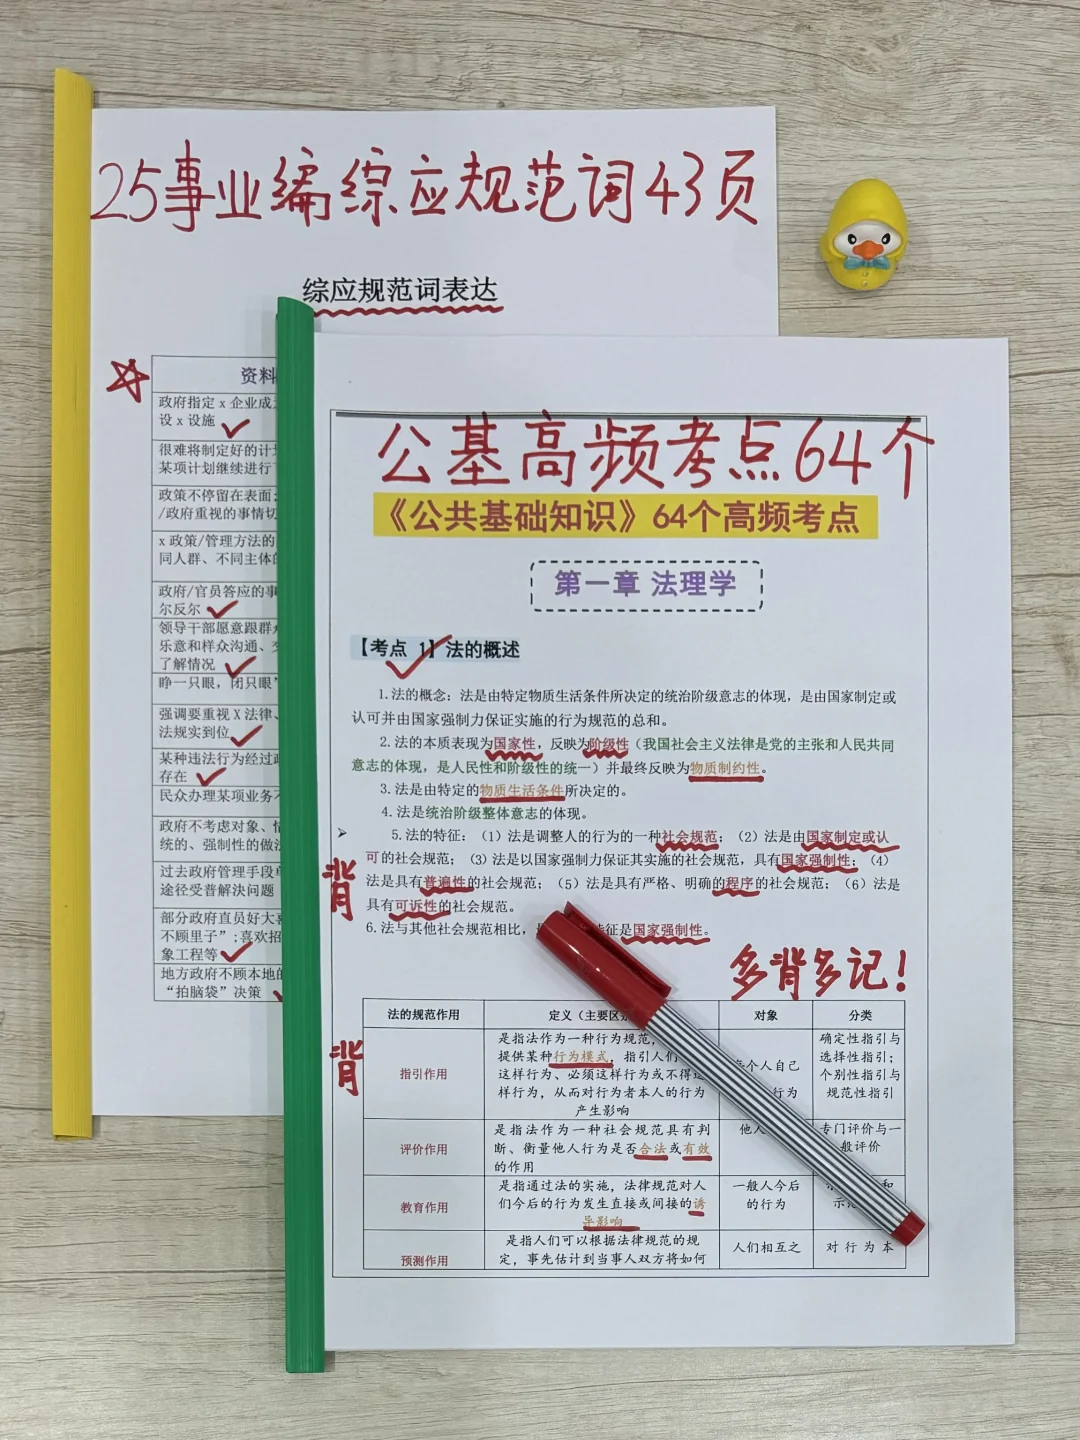 25事业编综应规范词43页
综应规范词表达
资料
政府指定 x 企业成
设 x 设施
很难将制定好的计
某项计划继续进行
政策不停留在表面
/政府重视的事情切
x 政策/管理方法的
同人群、不同主体
政府/官员答应的事
尔反尔
领导干部愿意跟群
乐意和样众沟通、
了解情况
睁一只眼，闭只眼”
强调要重视 X 法律、
法规实到位
某种违法行为经过
存在
民众办理某项业务
政府不考虑对象、
统的、强制性的做
过去政府管理手段
途径受普解决问题
部分政府直员好大
不顾里子”;喜欢招
象工程等
地方政府不顾本地
“拍脑袋”决策
公基高频考点64个
《公共基础知识》64个高频考点
第一章 法理学
【考点 1】法的概述
1.法的概念：法是由特定物质生活条件所决定的统治阶级意志的体现，是由国家制定或
认可并由国家强制力保证实施的行为规范的总和。
2.法的本质表现为国家性，反映为阶级性（我国社会主义法律是党的主张和人民共同
意志的体现，是人民性和阶级性的统一）并最终反映为物质制约性。
3.法是由特定的物质生活条件所决定的。
4.法是统治阶级整体意志的体现。
5.法的特征：（1）法是调整人的行为的一种社会规范；（2）法是由国家制定或认
可的社会规范；（3）法是以国家强制力保证其实施的社会规范，具有国家强制性；（4）
法是具有普遍性的社会规范；（5）法是具有严格、明确的程序的社会规范；（6）法是
具有可诉性的社会规范。
背
6.法与其他社会规范相比，特征是国家强制性。
多背多记！
背
法的规范作用 定义（主要区 对象 分类
指引作用
是指法作为一种行为规范，
提供某种行为模式，指引人们
这样行为、必须这样行为或不得
样行为，从而对行为者本人的行为
产生影响
个人自己
行为
确定性指引与
选择性指引；
个别性指引与
规范性指引
评价作用
是指法作为一种社会规范具有判
断、衡量他人行为是否合法或有效
的作用
他人
专门评价与一
般评价
教育作用
是指通过法的实施，法律规范对人
们今后的行为发生直接或间接的诱
导影响
一般人今后
的行为
和
示
预测作用
是指人们可以根据法律规范的规
定，事先估计到当事人双方将如何
人们相互之
对行为本